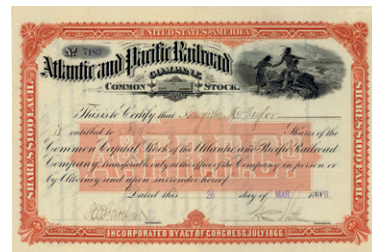 UNITED STATES OF AMERICA
No 7483
Atlantic and Pacific Railroad
COMPANY.
COMMON STOCK.
This is to Certify that Taylor
is entitled to Shares of the
Common Capital Stock of the Atlantic and Pacific Railroad
Company, transferable only at the office of the Company in person or
by Attorney and upon surrender hereof.
Dated this 26 day of MAR 188
SHARES $100 EACH.
SHARES $100 EACH.
INCORPORATED BY ACT OF CONGRESS, JULY 1866.